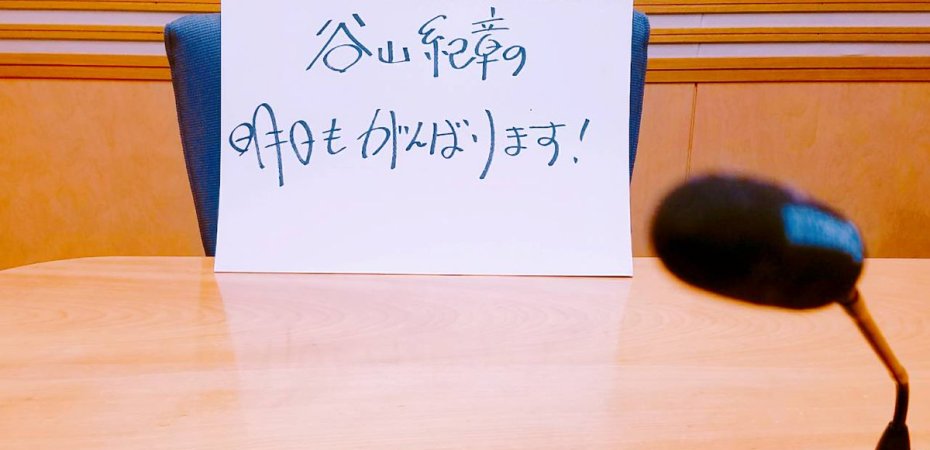 谷山紀章の
明日もがんばります!